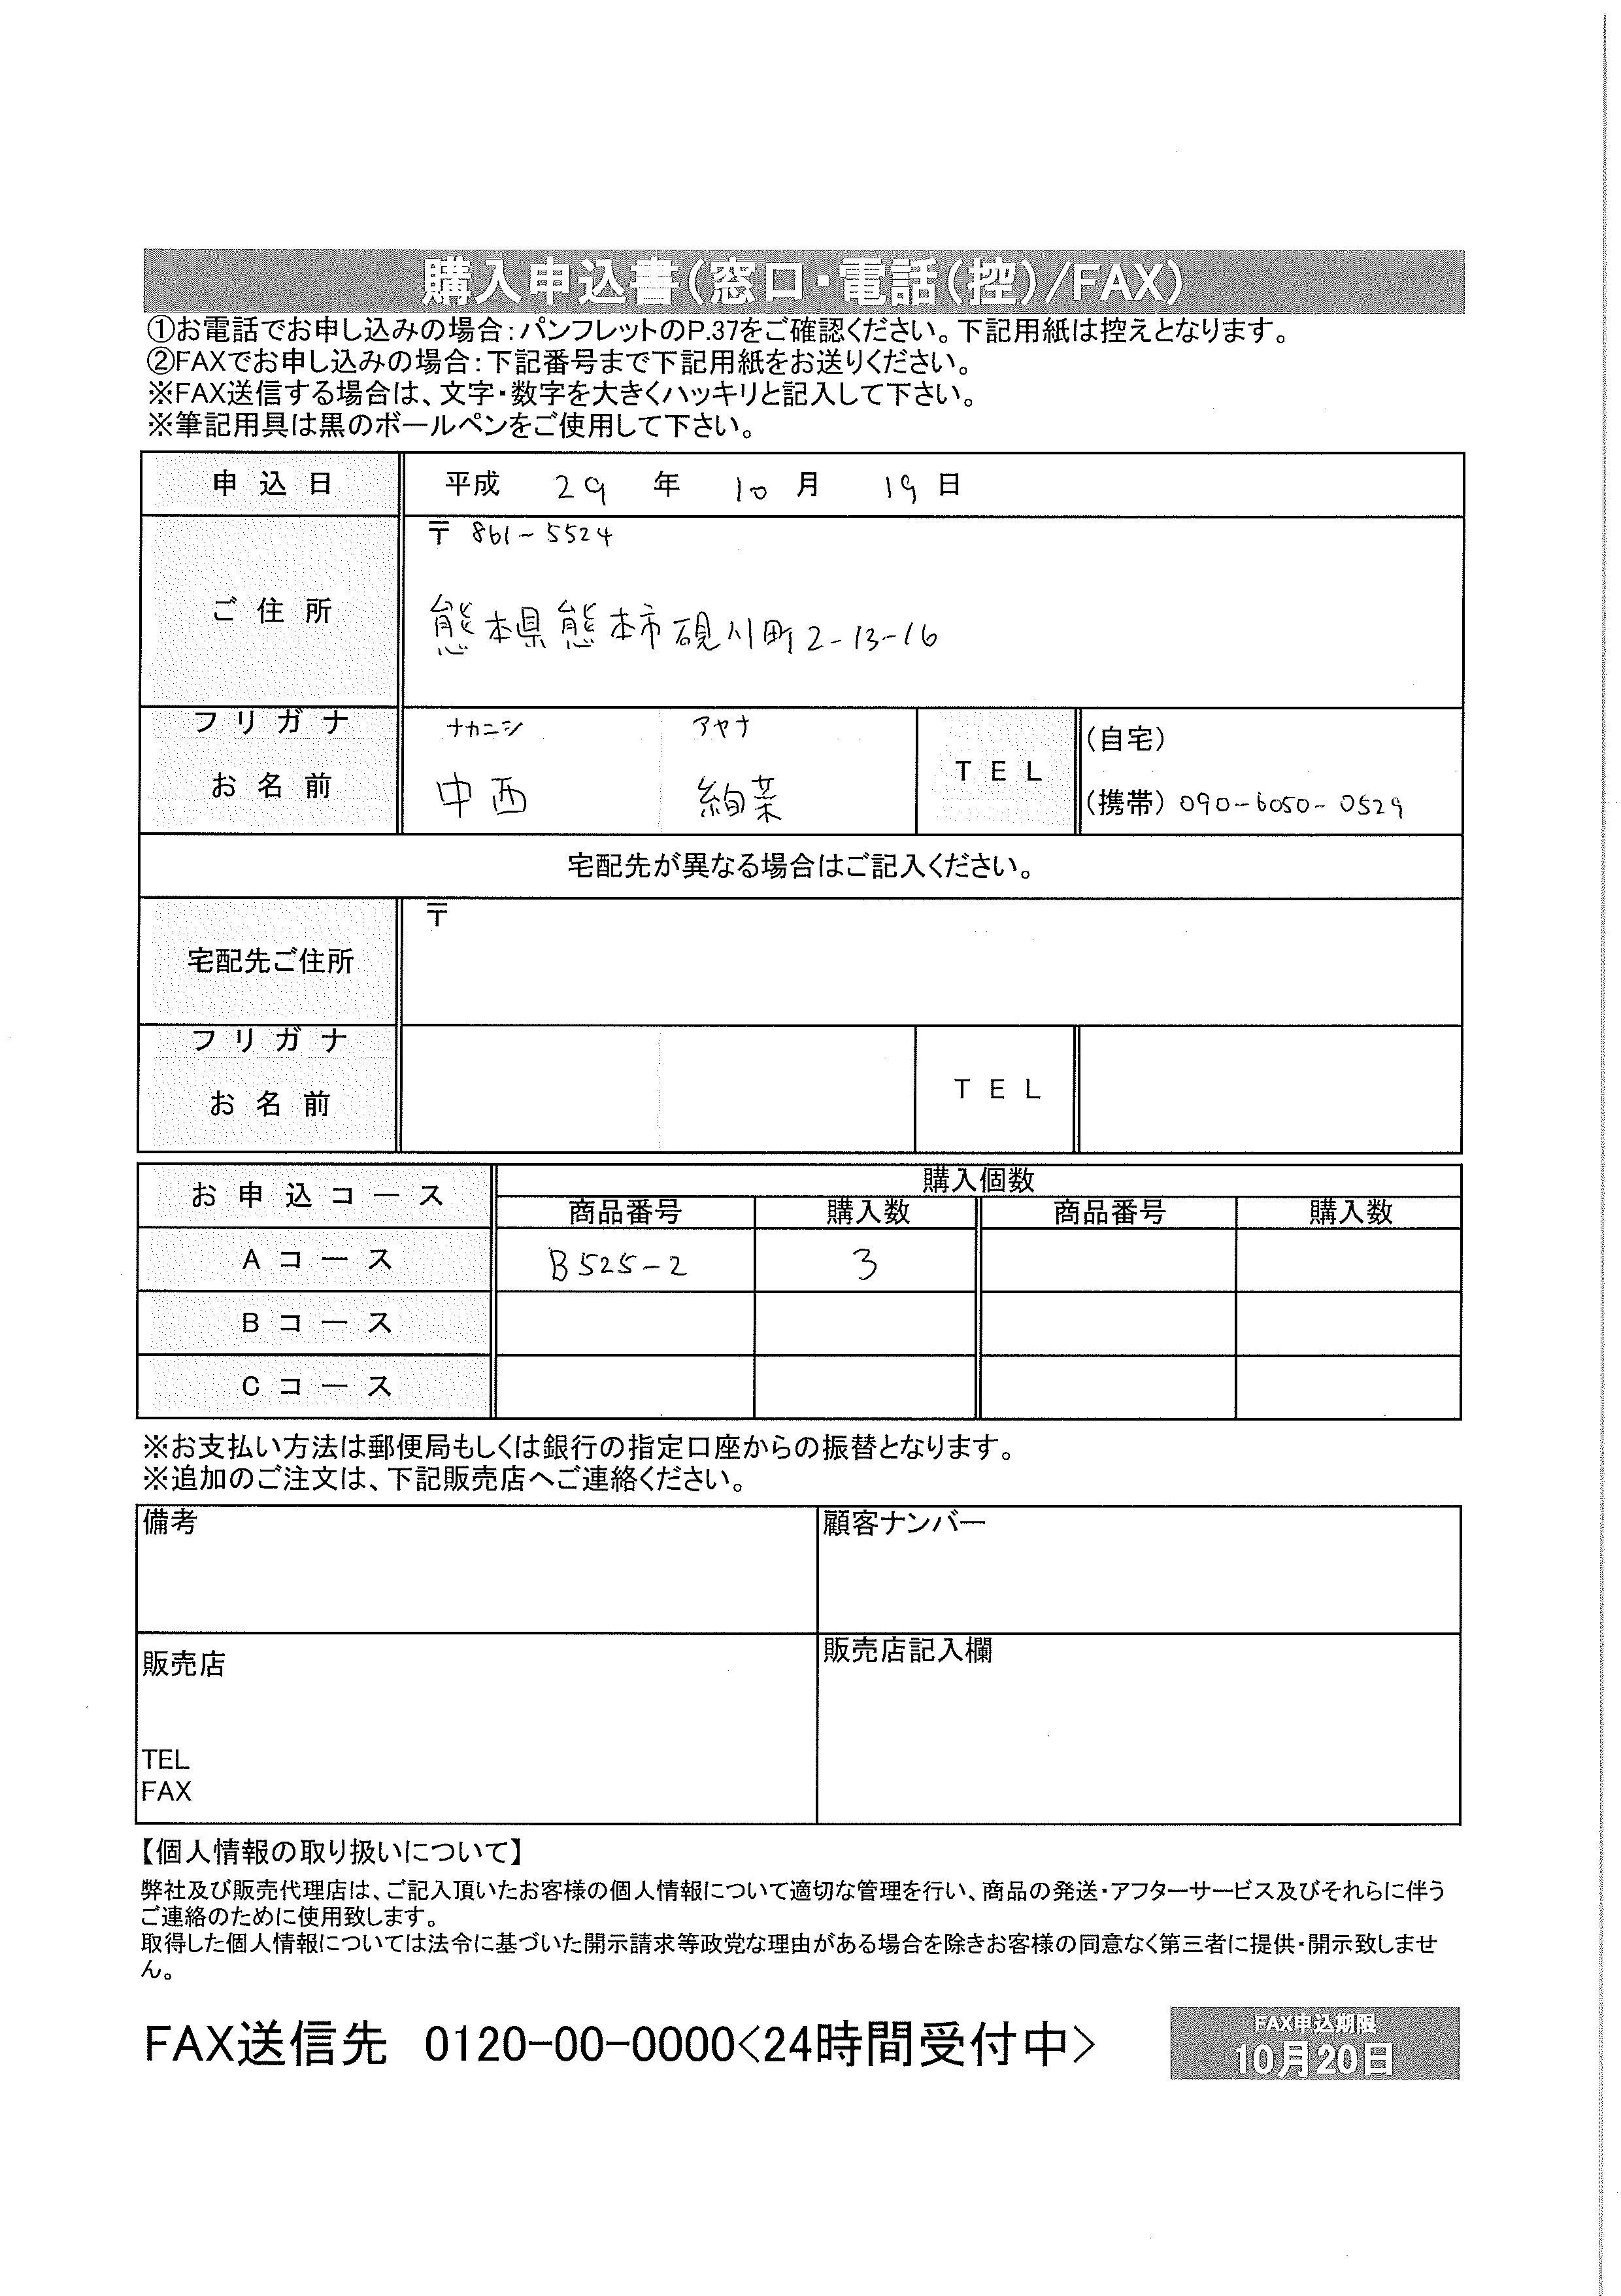 購入申込書(窓口・電話(控)/FAX)
①お電話でお申し込みの場合:パンフレットのP.37をご確認ください。下記用紙は控えとなります。
②FAXでお申し込みの場合:下記番号まで下記用紙をお送りください。
※FAX送信する場合は、文字・数字を大きくハッキリと記入して下さい。
※筆記用具は黒のボールペンをご使用して下さい。
申込日 平成 29 年 10 月 19 日
〒 861-5524
ご住所 熊本県熊本市硯川町2-13-16
フリガナ ナカニシ アヤナ
お名前 中西 絢菜
TEL (自宅)
(携帯) 090-6050-0529
宅配先が異なる場合はご記入ください。
〒
宅配先ご住所
フリガナ
お名前 TEL
お申込コース 購入個数
商品番号 購入数 商品番号 購入数
Aコース B525-2 3
Bコース
Cコース
※お支払い方法は郵便局もしくは銀行の指定口座からの振替となります。
※追加のご注文は、下記販売店へご連絡ください。
備考 顧客ナンバー
販売店 販売店記入欄
TEL
FAX
【個人情報の取り扱いについて】
弊社及び販売代理店は、ご記入頂いたお客様の個人情報について適切な管理を行い、商品の発送・アフターサービス及びそれらに伴う
ご連絡のために使用致します。
取得した個人情報については法令に基づいた開示請求等政党な理由がある場合を除きお客様の同意なく第三者に提供・開示致しませ
ん。
FAX送信先 0120-00-0000<24時間受付中>
FAX申込期限
10月20日